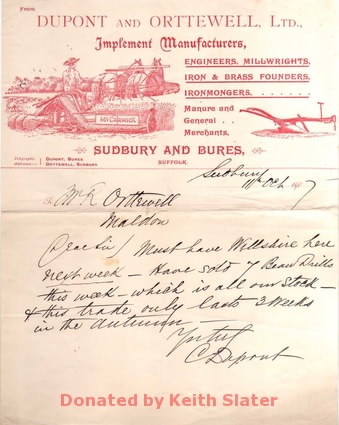 From
DUPONT AND ORTTEWELL, LTD.,
Implement Manufacturers,
ENGINEERS, MILLWRIGHTS,
IRON & BRASS FOUNDERS,
IRONMONGERS
Manure and
General
Merchants.
McCormick
SUDBURY AND BURES,
SUFFOLK.
DUPONT, BURES
ORTTEWELL, SUDBURY
Sudbury
11th Oct 1907
Mr R Orttewell
Maldon
Dear Sir / Must have Willshire here
next week - Have sold 7 Bean Drills
this week - which is all our stock -
& this trade only lasts 3 Weeks
in the Autumn
Yrs truly
C Dupont
Donated by Keith Slater